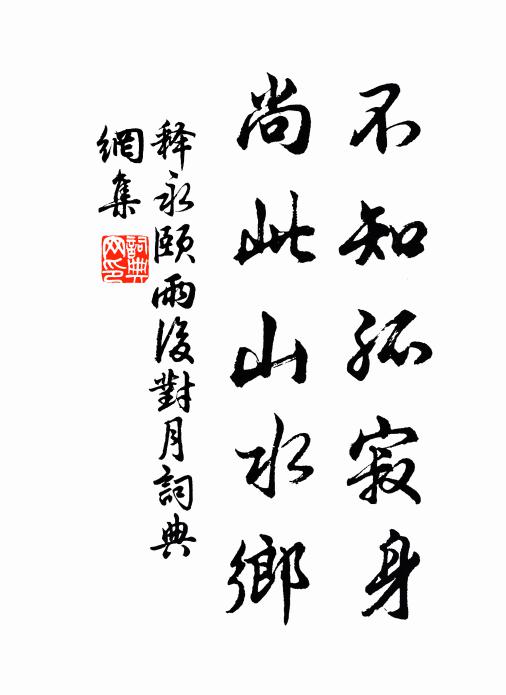 不知孤寂身
尚此山水鄉
释永颐雨後對月詞典
網集
詞典網印